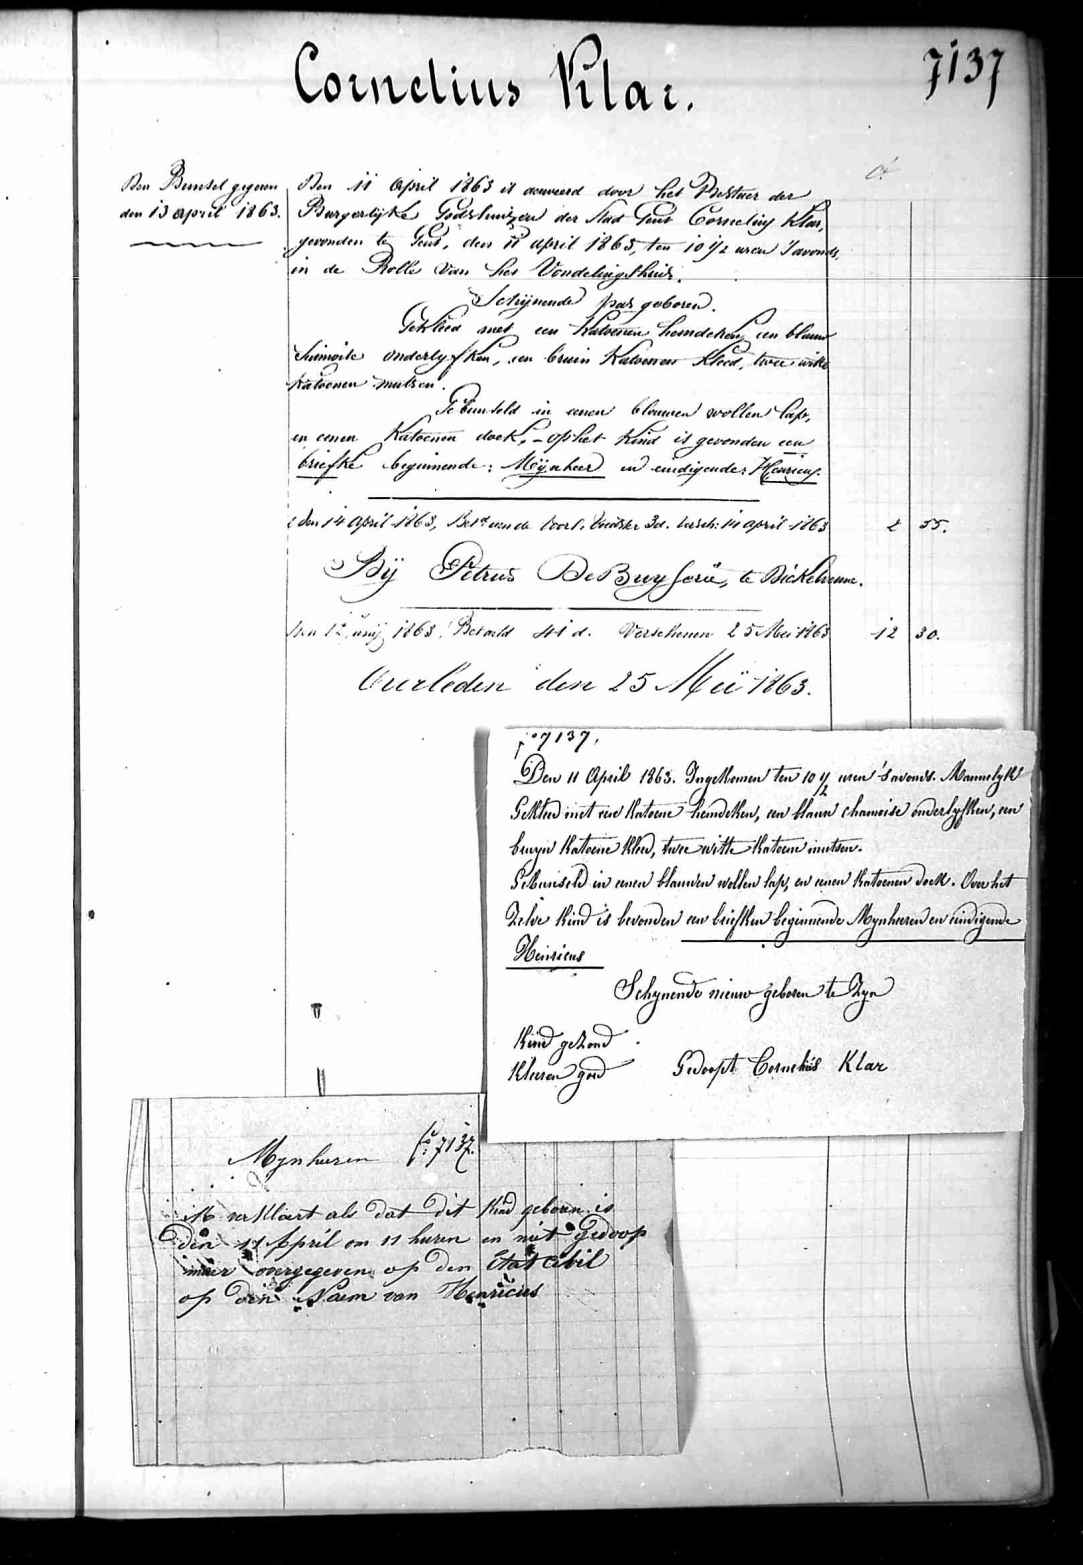 Cornelius Klar.
7137
Den Bunsel gegeven
den 13 april 1863.
Den 11 April 1863 is aenveerd door het Bestuer der
Burgerlijke Godshuizen der Stad Gent Cornelius Klar,
gevonden te Gent, den 11 april 1863, ten 10 1/2 uren 's avonds,
in de Rolle van het Vondelingshuis.
Schijnende pas geboren.
Gekleed met een katoenen hemdeken, een blauw
chimoise onderlyfken, een bruin katoenen kleed, twee witte
katoenen mutsen.
Gebunseld in eenen blauwen wollen lap,
en eenen katoenen doek, - op het kind is gevonden een
briefke beginnende: Mijnheer en eindigende: Henricus.
den 14 april 1863, 3d. versch: 14 april 1863 2 55.
Bij Petrus De Buysserie, te Dickelvenne.
Den 12 Junij 1863 Betaeld 41 d. Verschenen 25 Mei 1863 12 30.
Overleden den 25 Meï 1863.
fo 7137.
Den 11 April 1863. Ingekomen ten 10 1/2 uren 's avonds. Mannelyk
Gekleed met een katoene hemdeken, een blauw chamoise onderlyfken, een
bruyn katoene kleed, twee witte katoene mutsen.
Gebunseld in eenen blauwen wollen lap, en eenen katoenen doek. Over het
zelve kind is bevonden een briefken beginnende Mynheeren en eindigende
Henricus
Schynende nieuw geboren te zyn
Kind gezond
Kleeren goed Gedoopt Cornelius Klar
fo: 7137.
Mynheeren
ik verklaert als dat dit kind geboren is
den 11 April om 11 huren en niet gedoop
maer overgegeven op den état civil
op den Naem van Henricus